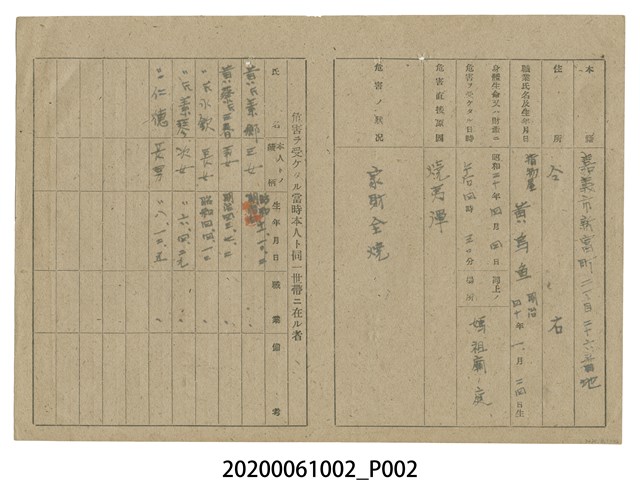 本籍 嘉義市新富町二丁目二十六番地
住所 仝右
職業氏名及生年月日 黄烏魚 明治四十年一月二四日生
身體生命又ハ財産ニ
危害ヲ受ケタル日時 昭和二十年四月四日 午后四時三〇分 同上ノ場所 媽祖廟ノ庭
危害直接原因 燒夷彈
危害ノ狀況 家財全燒
危害ヲ受ケタル當時本人ト同一世帶ニ在ル者
氏名 本人トノ續柄 生年月日 職業 備考
黄氏素卿 三女
〃氏永歓 長女 昭和四、
〃氏素琴 次女 〃六、四、
〃仁德 長男 〃八、一〇、五
20200061002_P002